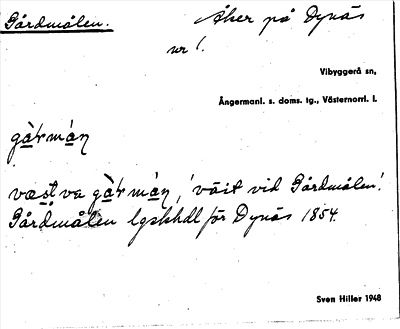 Gårdmålen. Åker på Dynäs
nr 1.
Vibyggerå sn,
Ångermanl. s. doms. tg., Västernorrl. l.
gàrmán
væstva gàrmán, 'väst vid Gårdmålen'.
Gårdmålen lgskhdl för Dynäs 1854.
Sven Hiller 1948